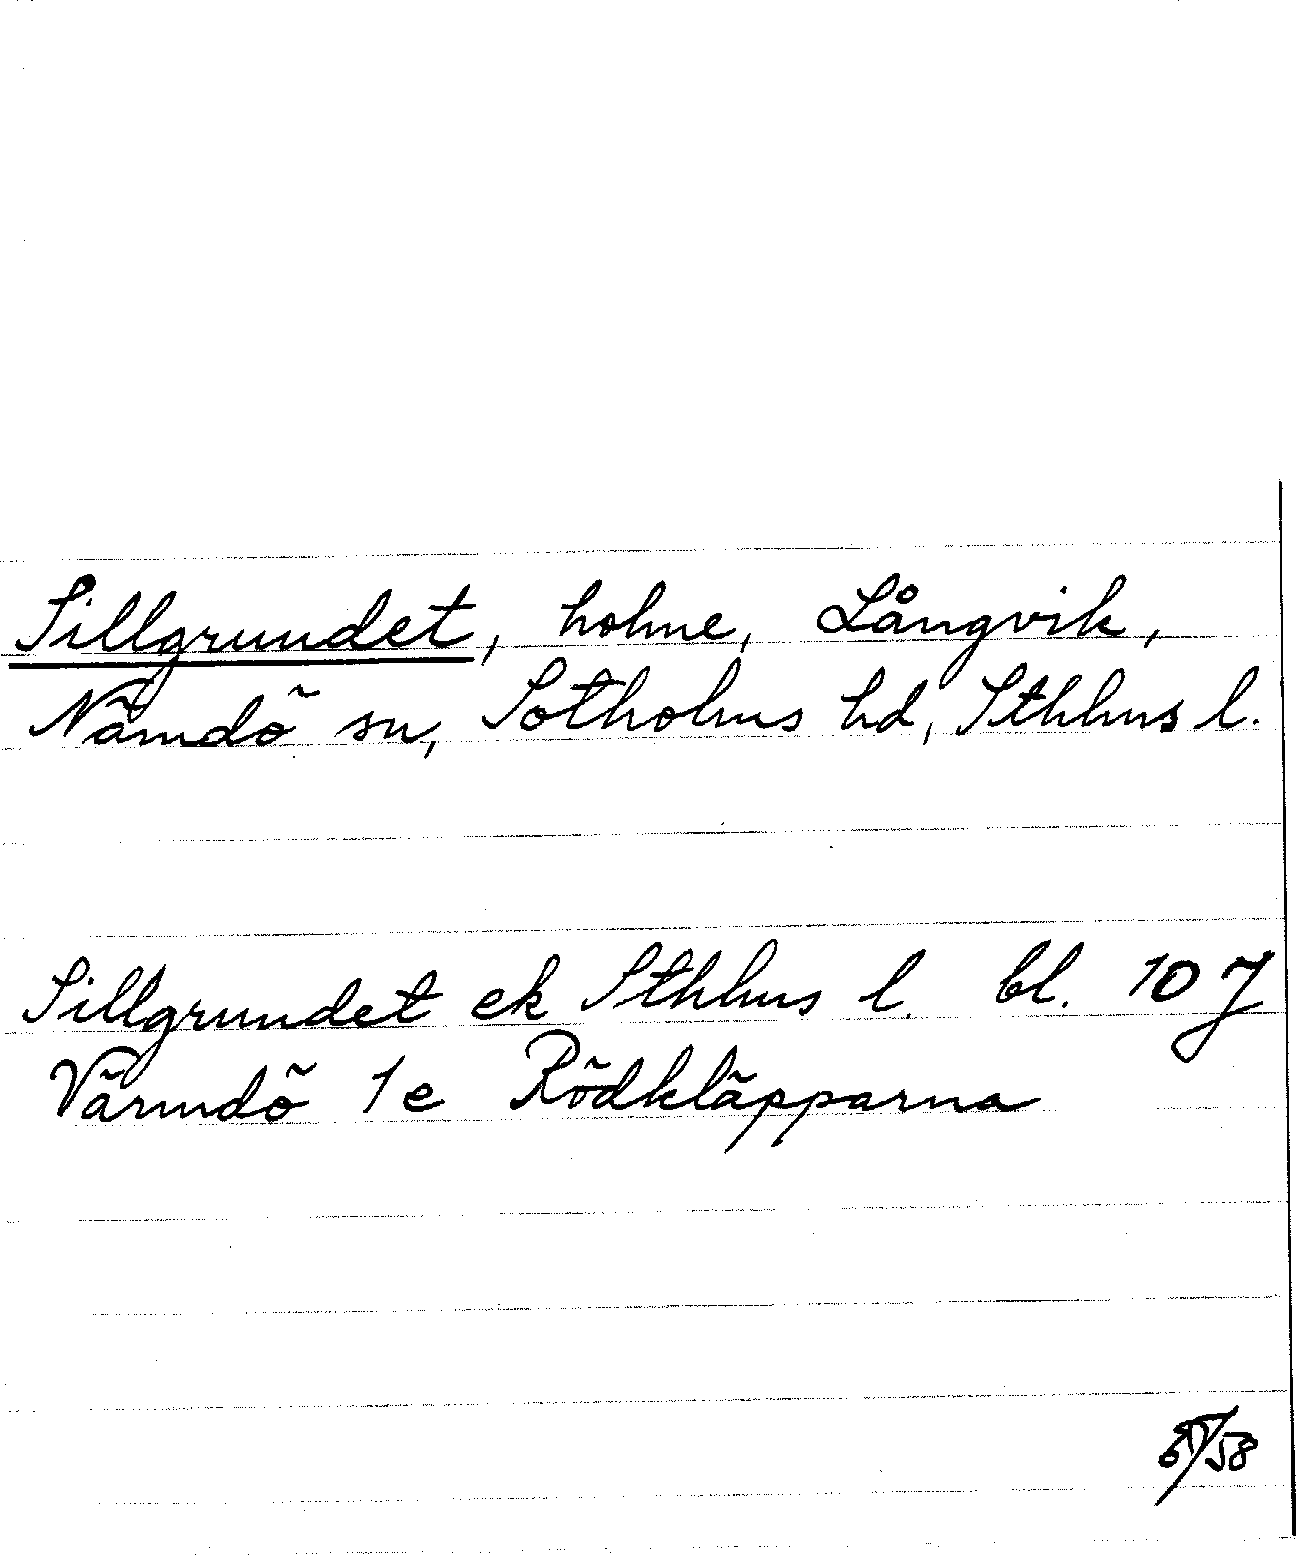 Sillgrundet, holme, Långvik,
Nämdö sn, Sotholms hd, Sthlms l.
Sillgrundet ek Sthlms l. bl. 107
Värmdö 1e Rödkläpparna
/58